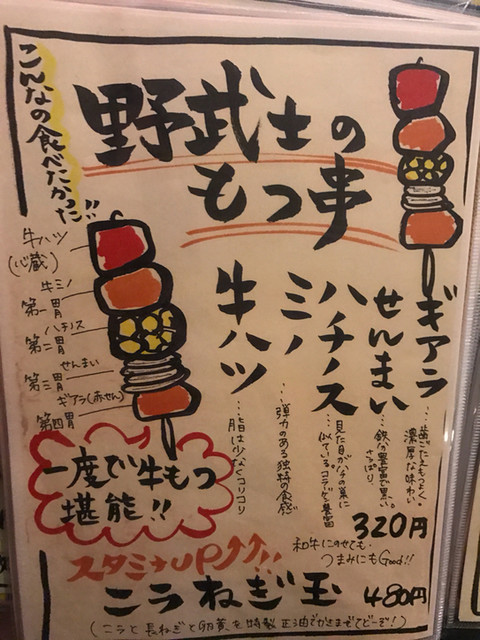 こんなの食べたかった!!
野武士の
もつ串
牛ハツ
(心蔵)
牛ミノ
第一胃
ハチノス
第二胃
せんまい
第三胃
ギアラ(赤せん)
第四胃
一度で牛もつ
堪能!!
ギアラ
…歯ごたえもつよく。
濃厚な味わい
せんまい
…鉄分豊富で黒い。
さっぱり。
ハチノス
…見た目がハチの巣に
似ている。コラーゲン豊富
ミノ
…弾力のある独特の食感♪
牛ハツ
…脂は少なくコリコリ
320円
和牛にのせても
つまみにもGood!!
スタミナUP↑↑!!
ニラねぎ玉 480円
(ニラと長ねぎと卵黄を特製正油でかきまぜてどーぞ!)